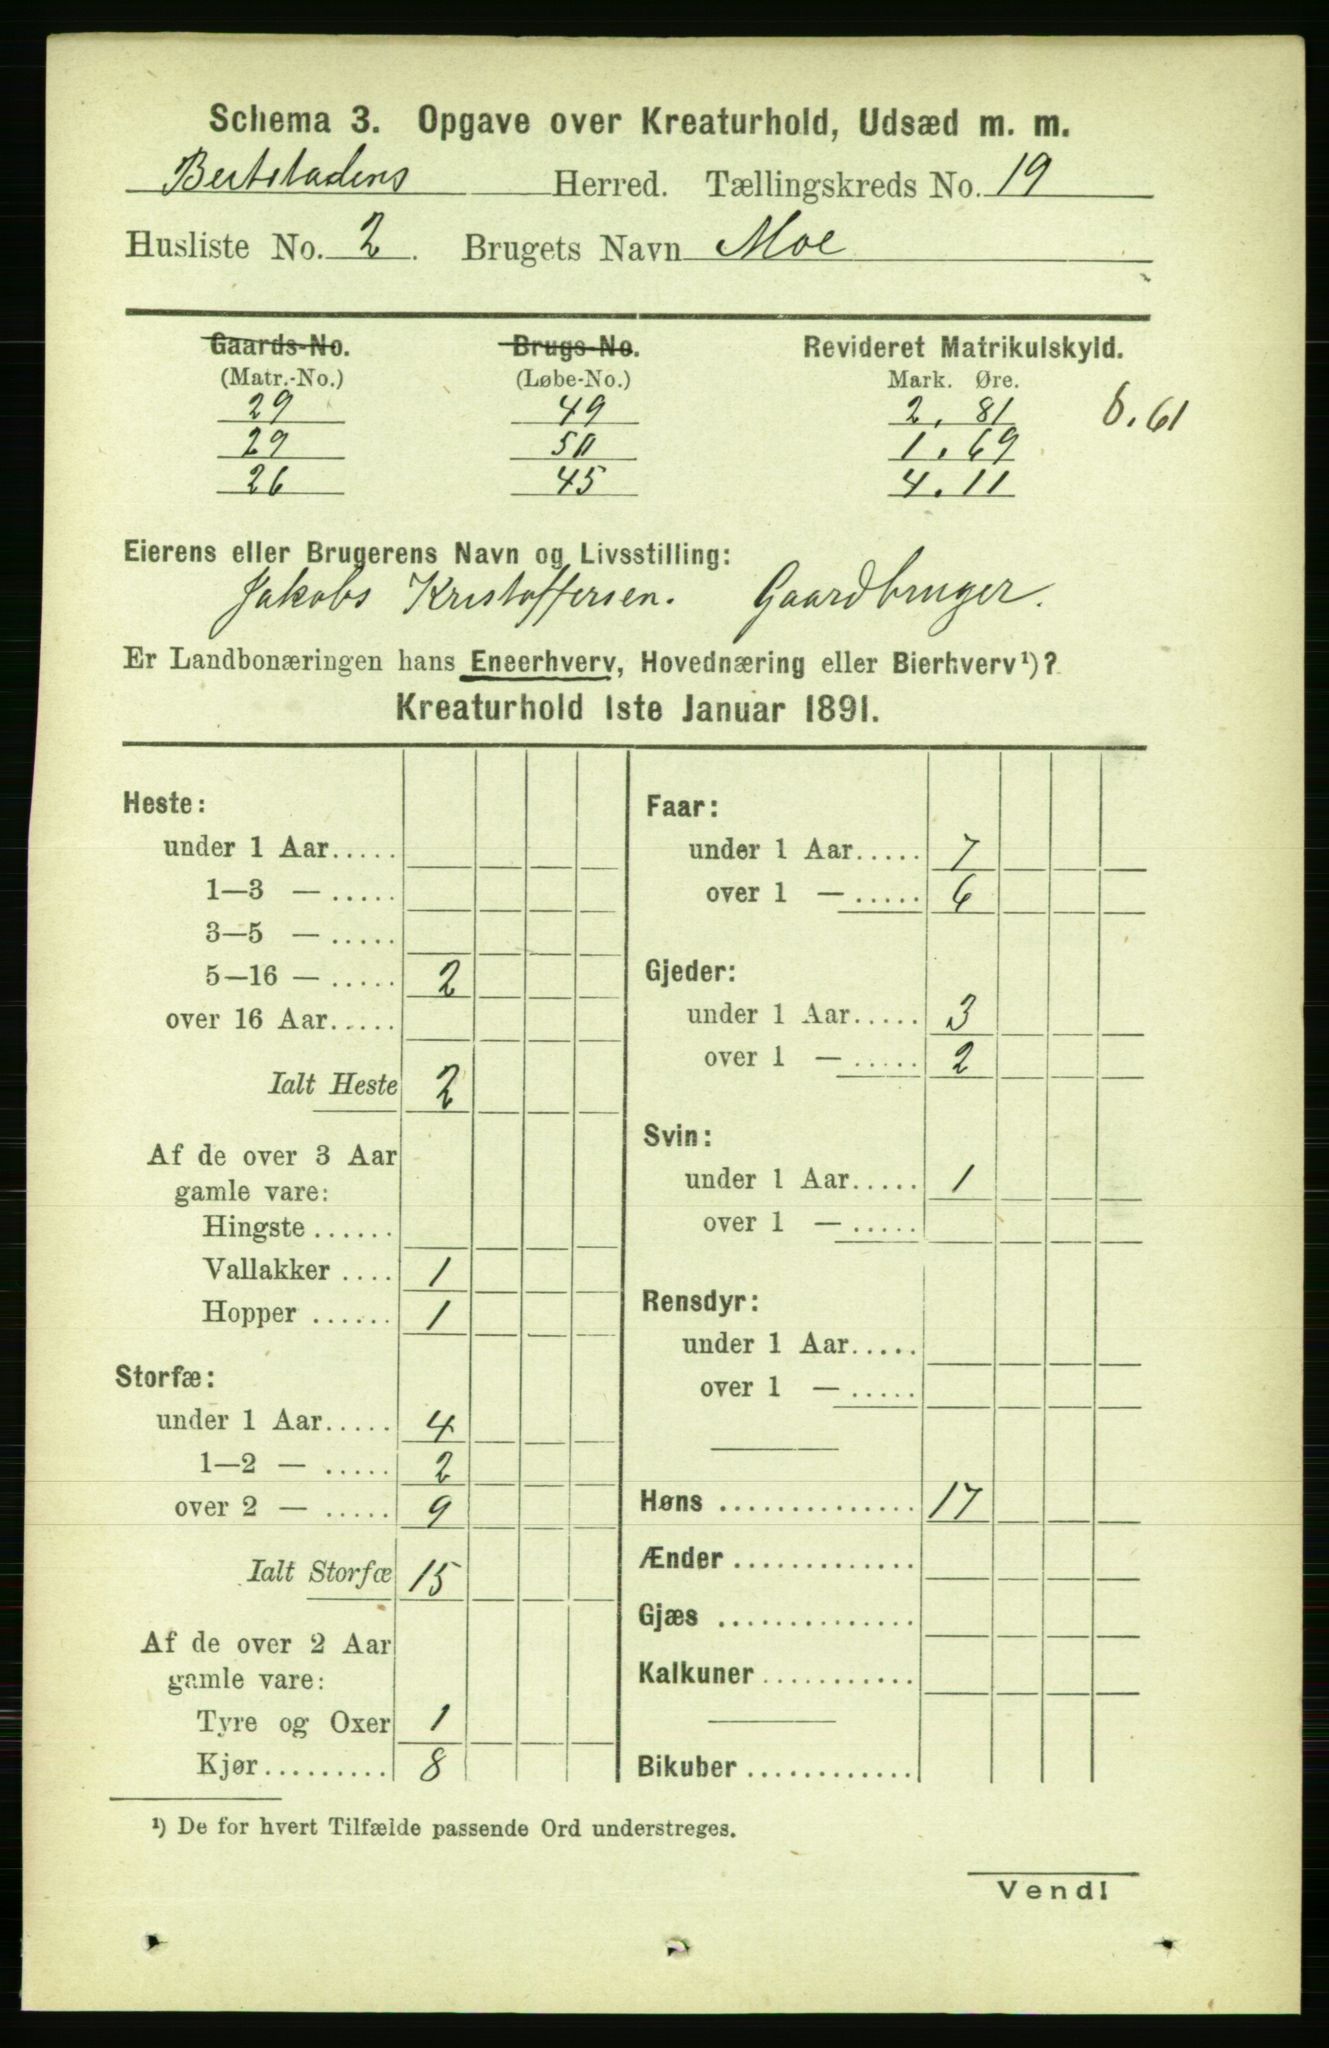 Schema 3. Opgave over Kreaturhold, Udsæd m. m.
Beitstadens Herred. Tællingskreds No. 19
Husliste No. 2. Brugets Navn Moe
Gaards-No. Brugs-No. Revideret Matrikulskyld.
(Matr.-No.) (Løbe-No.) Mark. Øre.
29 49 2.81 8.61
29 50 1.69
26 45 4.11
Eierens eller Brugerens Navn og Livsstilling:
Jakobs Kristoffersen. Gaardbruger.
Er Landbonæringen hans Eneerhverv, Hovednæring eller Bierhverv¹)?
Kreaturhold 1ste Januar 1891.
Heste:
under 1 Aar.....
1—3 — .....
3—5 — .....
5—16 — ..... 2
over 16 Aar.....
Ialt Heste 2
Af de over 3 Aar
gamle vare:
Hingste ......
Vallakker .... 1
Hopper ...... 1
Storfæ:
under 1 Aar..... 4
1—2 — ..... 2
over 2 — ..... 9
Ialt Storfæ 15
Af de over 2 Aar
gamle vare:
Tyre og Oxer 1
Kjør......... 8
Faar:
under 1 Aar..... 7
over 1 — ..... 6
Gjeder:
under 1 Aar..... 3
over 1 — ..... 2
Svin:
under 1 Aar..... 1
over 1 — .....
Rensdyr:
under 1 Aar.....
over 1 — .....
Høns .............. 17
Ænder .............
Gjæs ..............
Kalkuner ...........
Bikuber ............
¹) De for hvert Tilfælde passende Ord understreges.
Vend!